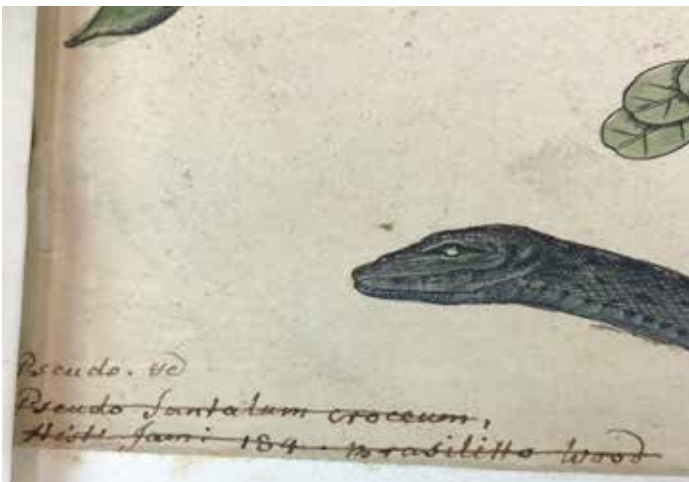 Pseudo. &c
Pseudo Santalum croceum,
Hist: Jami: 184. Brasilitto Wood